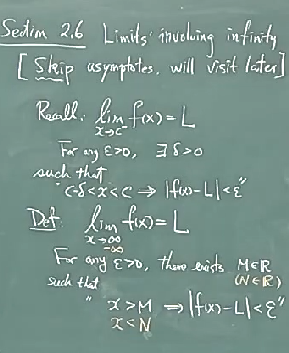 Section 2.6 Limits involving infinity
[Skip asymptotes, will visit later]
Recall. lim f(x) = L
x→c⁻
For any ε>0, ∃ δ>0
such that
"c-δ<x<c ⇒ |f(x)-L|<ε"
Def. lim f(x) = L
x→∞
-∞
For any ε>0, there exists M∈R
(N∈R)
such that
" x>M ⇒ |f(x)-L|<ε"
x<N